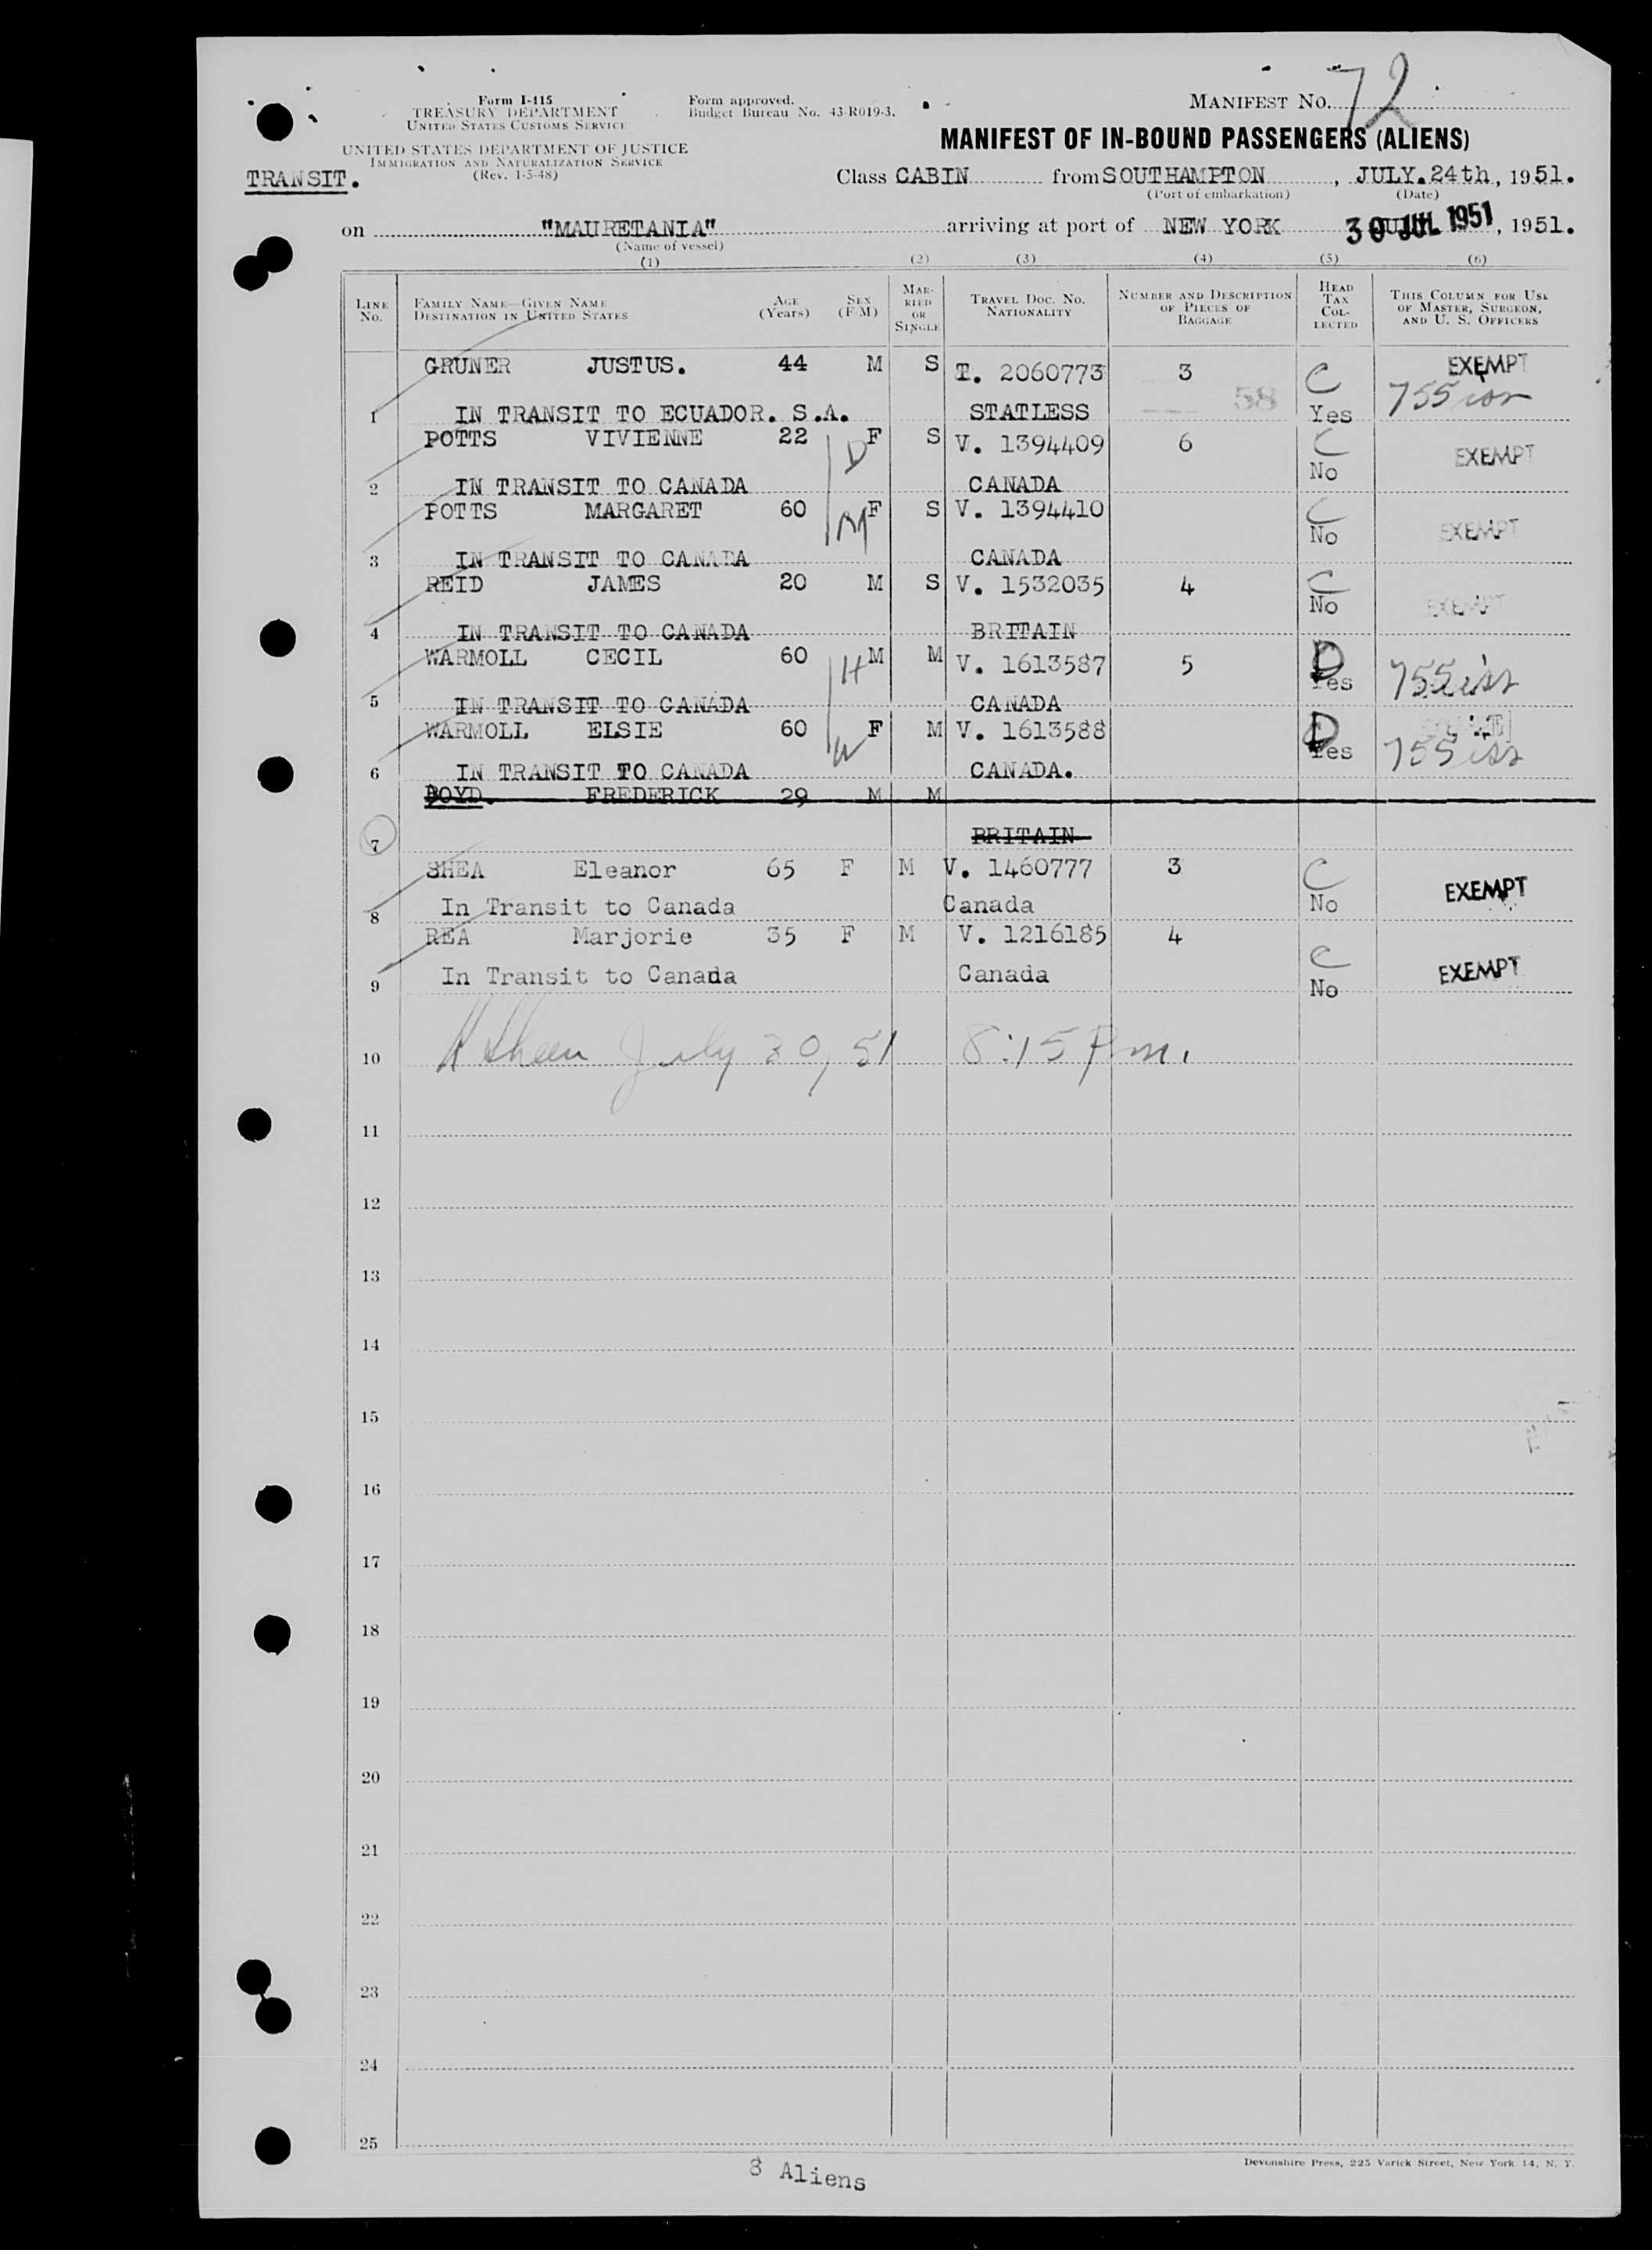 Form I-415
TREASURY DEPARTMENT
UNITED STATES CUSTOMS SERVICE
UNITED STATES DEPARTMENT OF JUSTICE
IMMIGRATION AND NATURALIZATION SERVICE
(Rev. 1-5-48)
TRANSIT.
Form approved.
Budget Bureau No. 43-R019-3.
MANIFEST NO. 72
MANIFEST OF IN-BOUND PASSENGERS (ALIENS)
Class CABIN from SOUTHAMPTON, JULY.24th, 1951.
(Port of embarkation) (Date)
on "MAURETANIA" arriving at port of NEW YORK 30 JUL 1951, 1951.
(Name of vessel)
(1) (2) (3) (4) (5) (6)
LINE NO. FAMILY NAME—GIVEN NAME DESTINATION IN UNITED STATES AGE (Years) SEX (F-M) MARRIED OR SINGLE TRAVEL DOC. NO. NATIONALITY NUMBER AND DESCRIPTION OF PIECES OF BAGGAGE HEAD TAX COLLECTED THIS COLUMN FOR USE OF MASTER, SURGEON, AND U. S. OFFICERS
GRUNER JUSTUS. 44 M S T. 2060773 3 C EXEMPT
1 IN TRANSIT TO ECUADOR. S.A. STATLESS 58 Yes 755 iss
POTTS VIVIENNE 22 D F S V. 1394409 6 C EXEMPT
2 IN TRANSIT TO CANADA CANADA No
POTTS MARGARET 60 M F S V. 1394410 C EXEMPT
3 IN TRANSIT TO CANADA CANADA No
REID JAMES 20 M S V. 1532035 4 C EXEMPT
4 IN TRANSIT TO CANADA BRITAIN No
WARMOLL CECIL 60 H M M V. 1613587 5 D
5 IN TRANSIT TO CANADA CANADA Yes 755 iss
WARMOLL ELSIE 60 W F M V. 1613588 D
6 IN TRANSIT TO CANADA CANADA. Yes 755 iss
BOYD. FREDERICK 29 M M
7 BRITAIN
SHEA Eleanor 65 F M V. 1460777 3 C EXEMPT
8 In Transit to Canada Canada No
REA Marjorie 35 F M V. 1216185 4 C EXEMPT
9 In Transit to Canada Canada No
10 July 30, 51 8:15 Pm.
11
12
13
14
15
16
17
18
19
20
21
22
23
24
25
8 Aliens
Devonshire Press, 225 Varick Street, New York 14, N. Y.